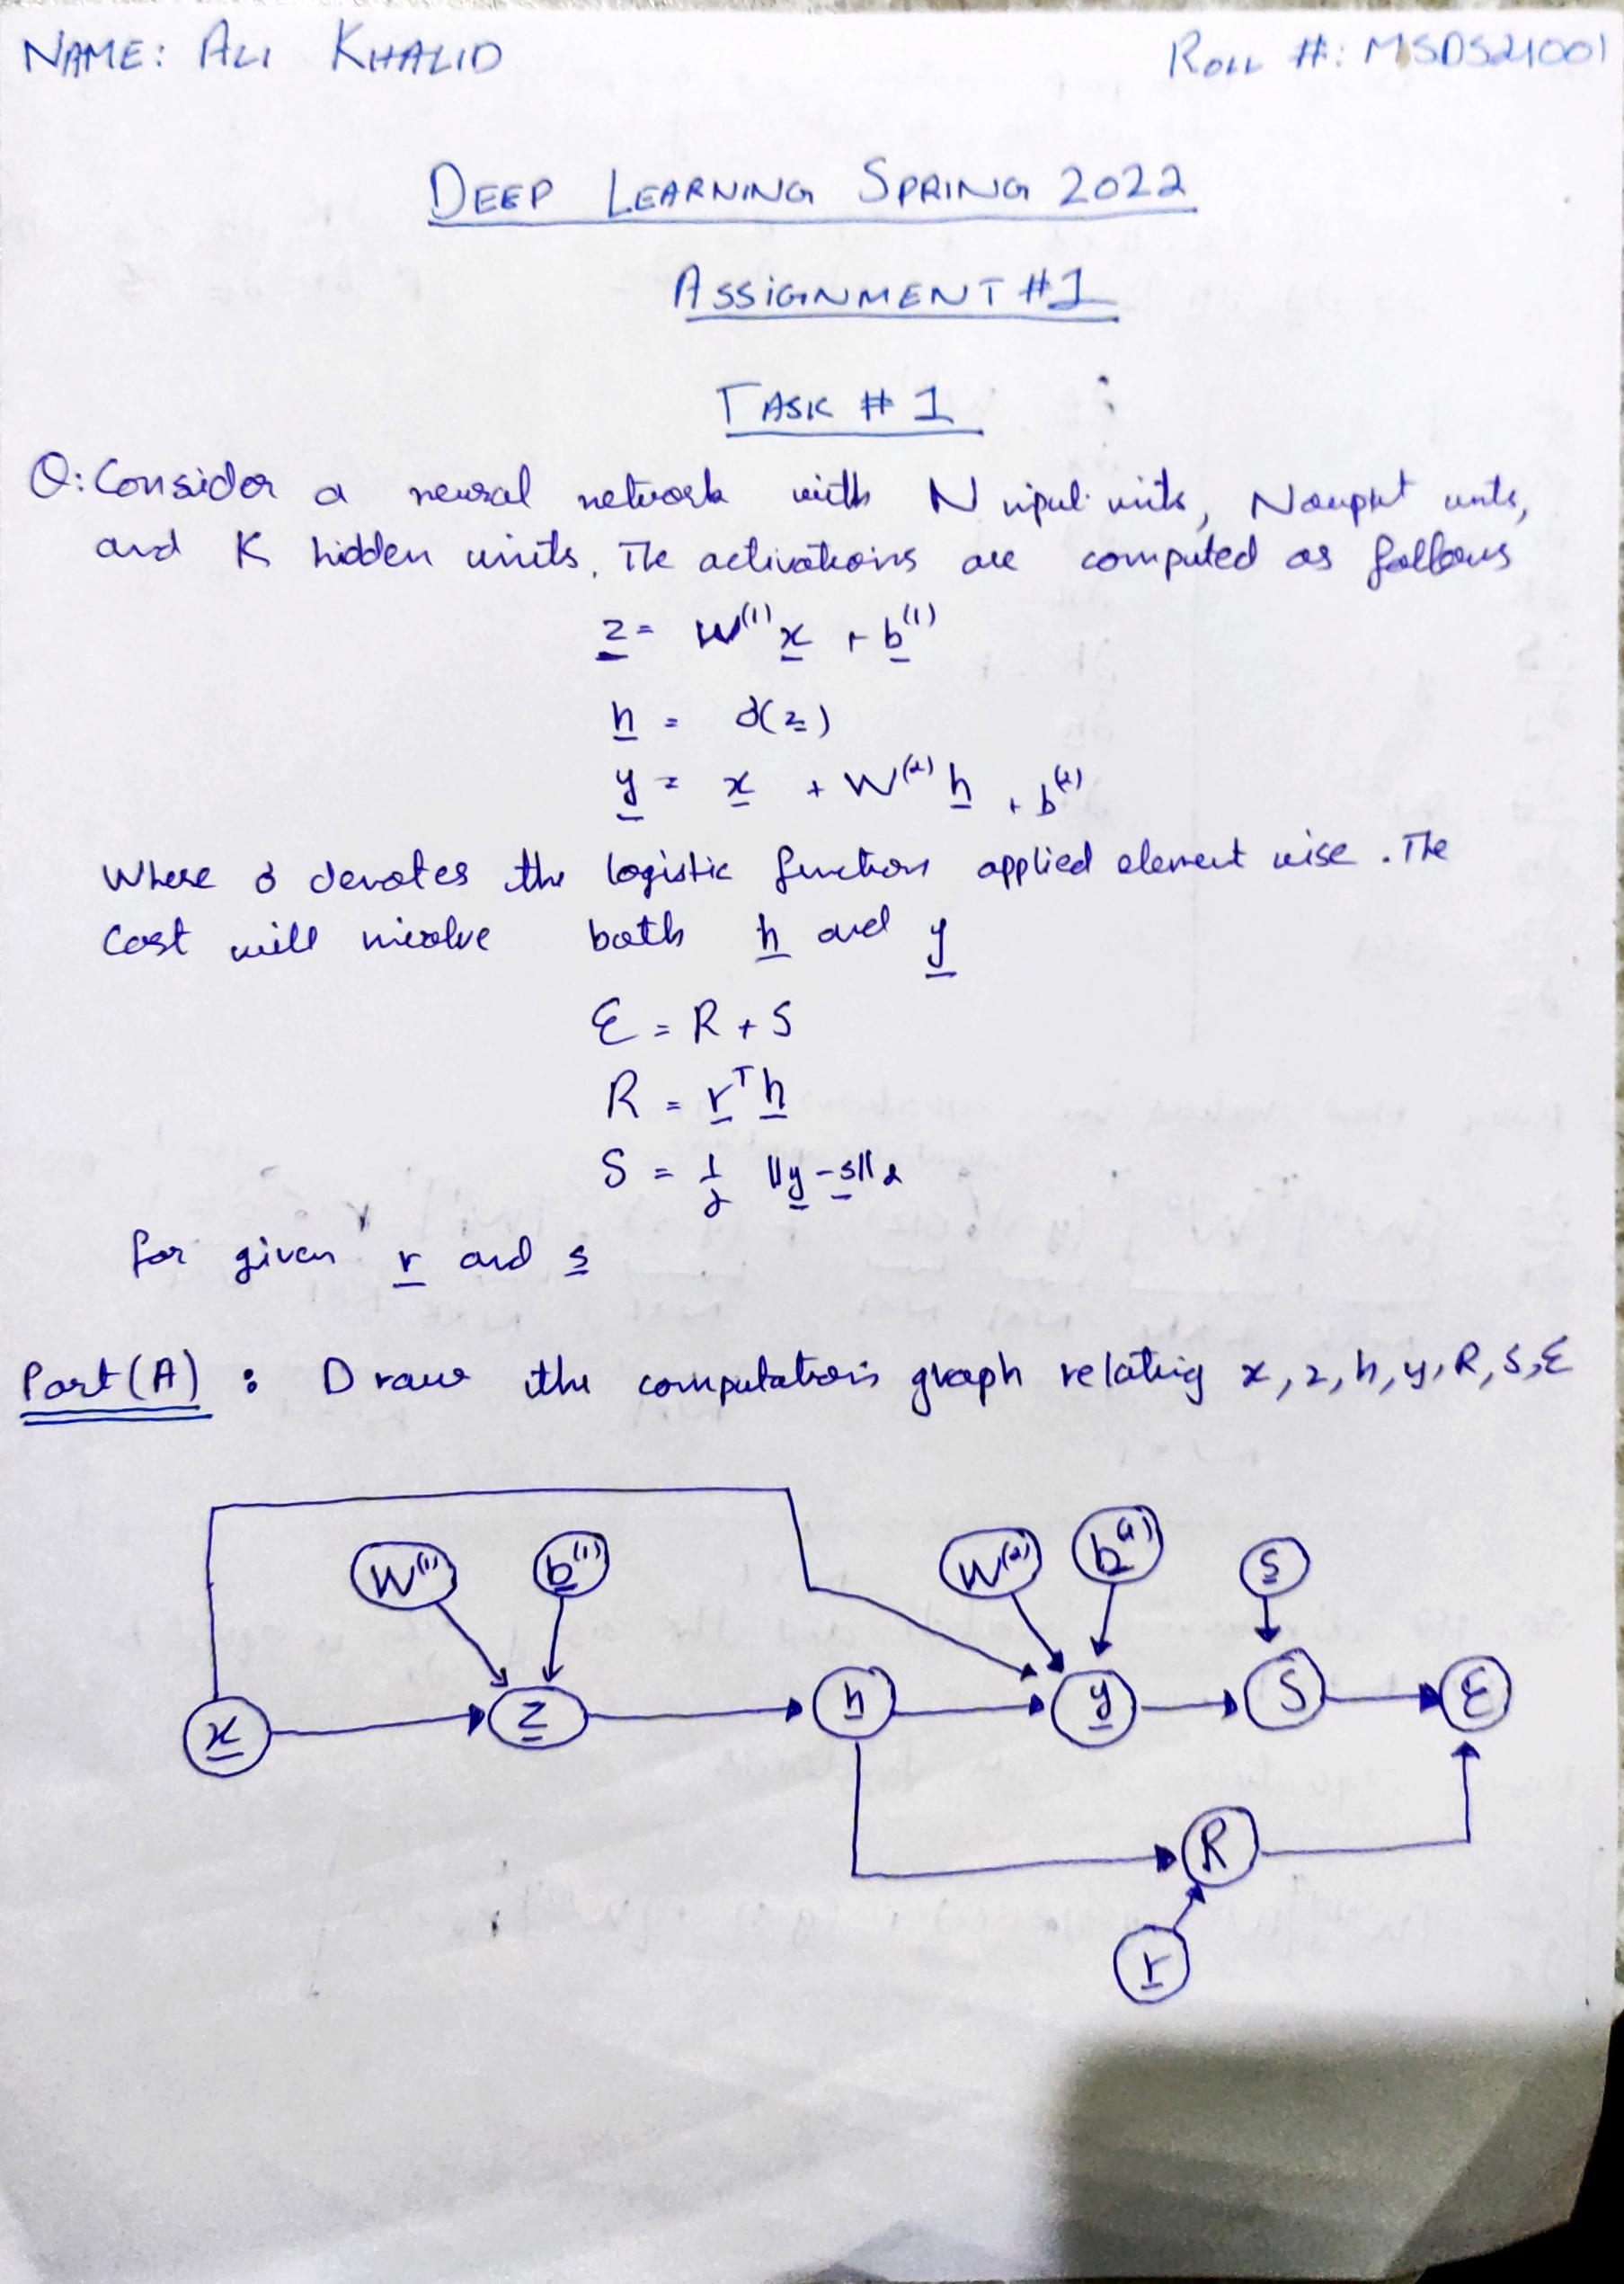 NAME: ALI KHALID
ROLL #: MSDS21001
DEEP LEARNING SPRING 2022
ASSIGNMENT #1
TASK # 1
Q: Consider a neural network with N input units, N ouput units,
and K hidden units. The activations are computed as follows
z = W⁽¹⁾ x + b⁽¹⁾
h = σ(z)
y = x + W⁽²⁾ h + b⁽²⁾
Where σ denotes the logistic function applied element wise. The
Cost will involve both h and y
ℰ = R + S
R = rᵀh
S = 1/2 ||y - s||2
for given r and s
Part (A) : Draw the computation graph relating x, z, h, y, R, S, ℰ
W⁽¹⁾ b⁽¹⁾ W⁽²⁾ b⁽²⁾ s
x z h y S ℰ
R
r